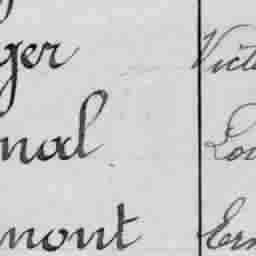 ger Victo
nal Lou
mont Ern